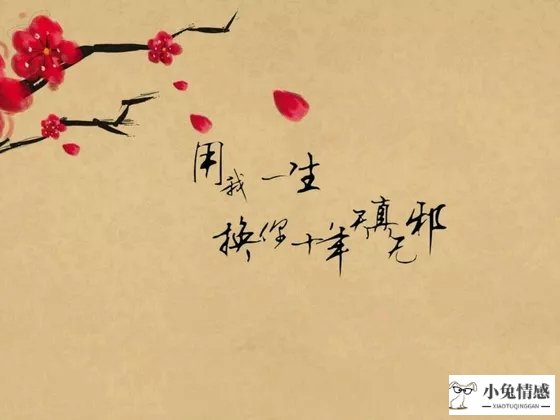 用我一生
换你十年天真无邪
小兔情感
XIAOTUQINGGAN